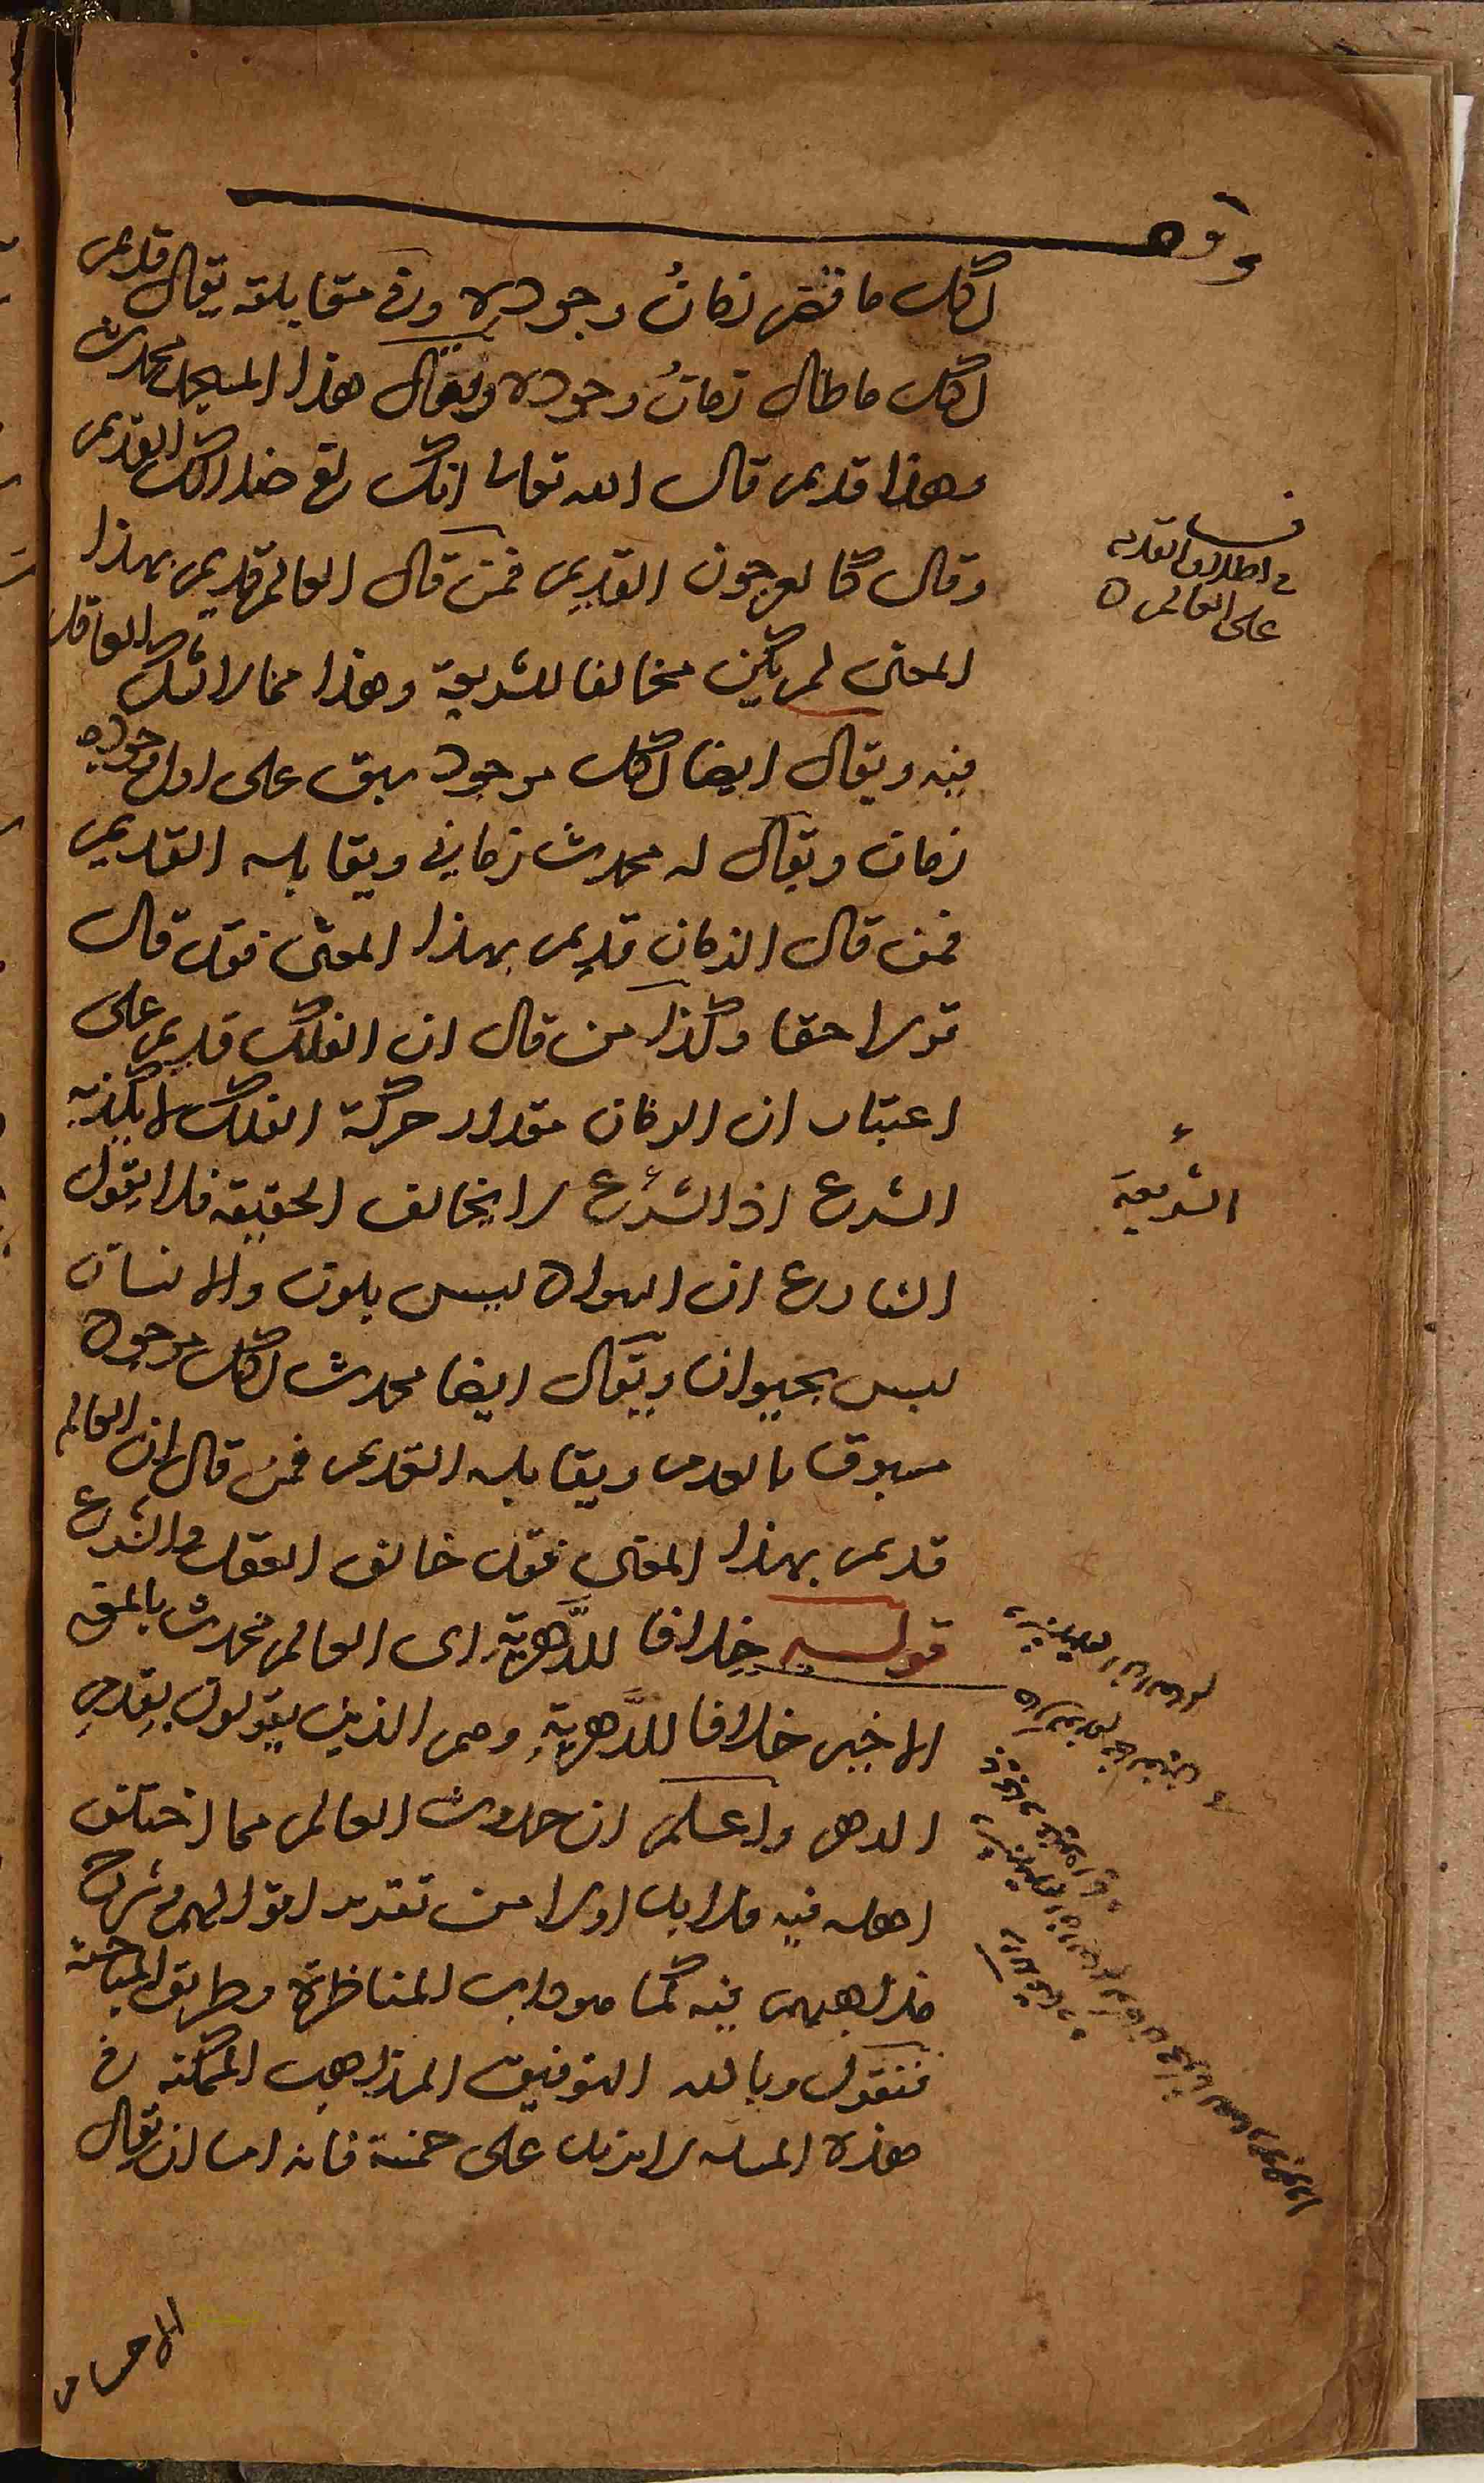 وقف
لكل ما نقص زمانُ وجوده وفي مقابلته يقال قديم
لكل ما طال زمانُ وجوده ويقال هذا المسجد محدث
وهذا قديم قال الله تعالى انك لفي ضلالك القديم
وقال كالعرجون القديم فمن قال العالم قديم بهذا
المعنى لم يكن مخالفا للشريعة وهذا مما لا يشك العاقل
فيه ويقال ايضا لكل موجود سبق على اول وجوده
زمان ويقال له محدث زماني ويقابله القديم
فمن قال الزمان قديم بهذا المعنى فقد قال
قولا حقا وكذا من قال ان الفلك قديم على
اعتبار ان الزمان مقدار حركة الفلك لا يكذبه
الشرع اذ الشرع لا يخالف الحقيقة فلا يقول
الشارع ان السواد ليس بلون والانسان
ليس بحيوان ويقال ايضا محدث لكل موجود
مسبوق بالعدم ويقابله القديم فمن قال ان العالم
قديم بهذا المعنى فقد خالف العقل والشرع
قوله خلافا للدَّهرية اى العالم محدث بالمعنى
الاخير خلافا للدَّهرية وهم الذين يقولون بقدم
الدهر واعلم ان حدوث العالم مما اختلف
اهله فيه فلا بد اولا من تقديم اقوالهم وشرح
مذاهبهم فيه كما هو داب المناظرة وطريق المباحثة
فنقول وبالله التوفيق المذاهب الممكنة في
هذه المسئله لا يزيد على خمسة فانه اما ان يقال
الاجسام
في اطلاق القديم
على العالم
الشريعة